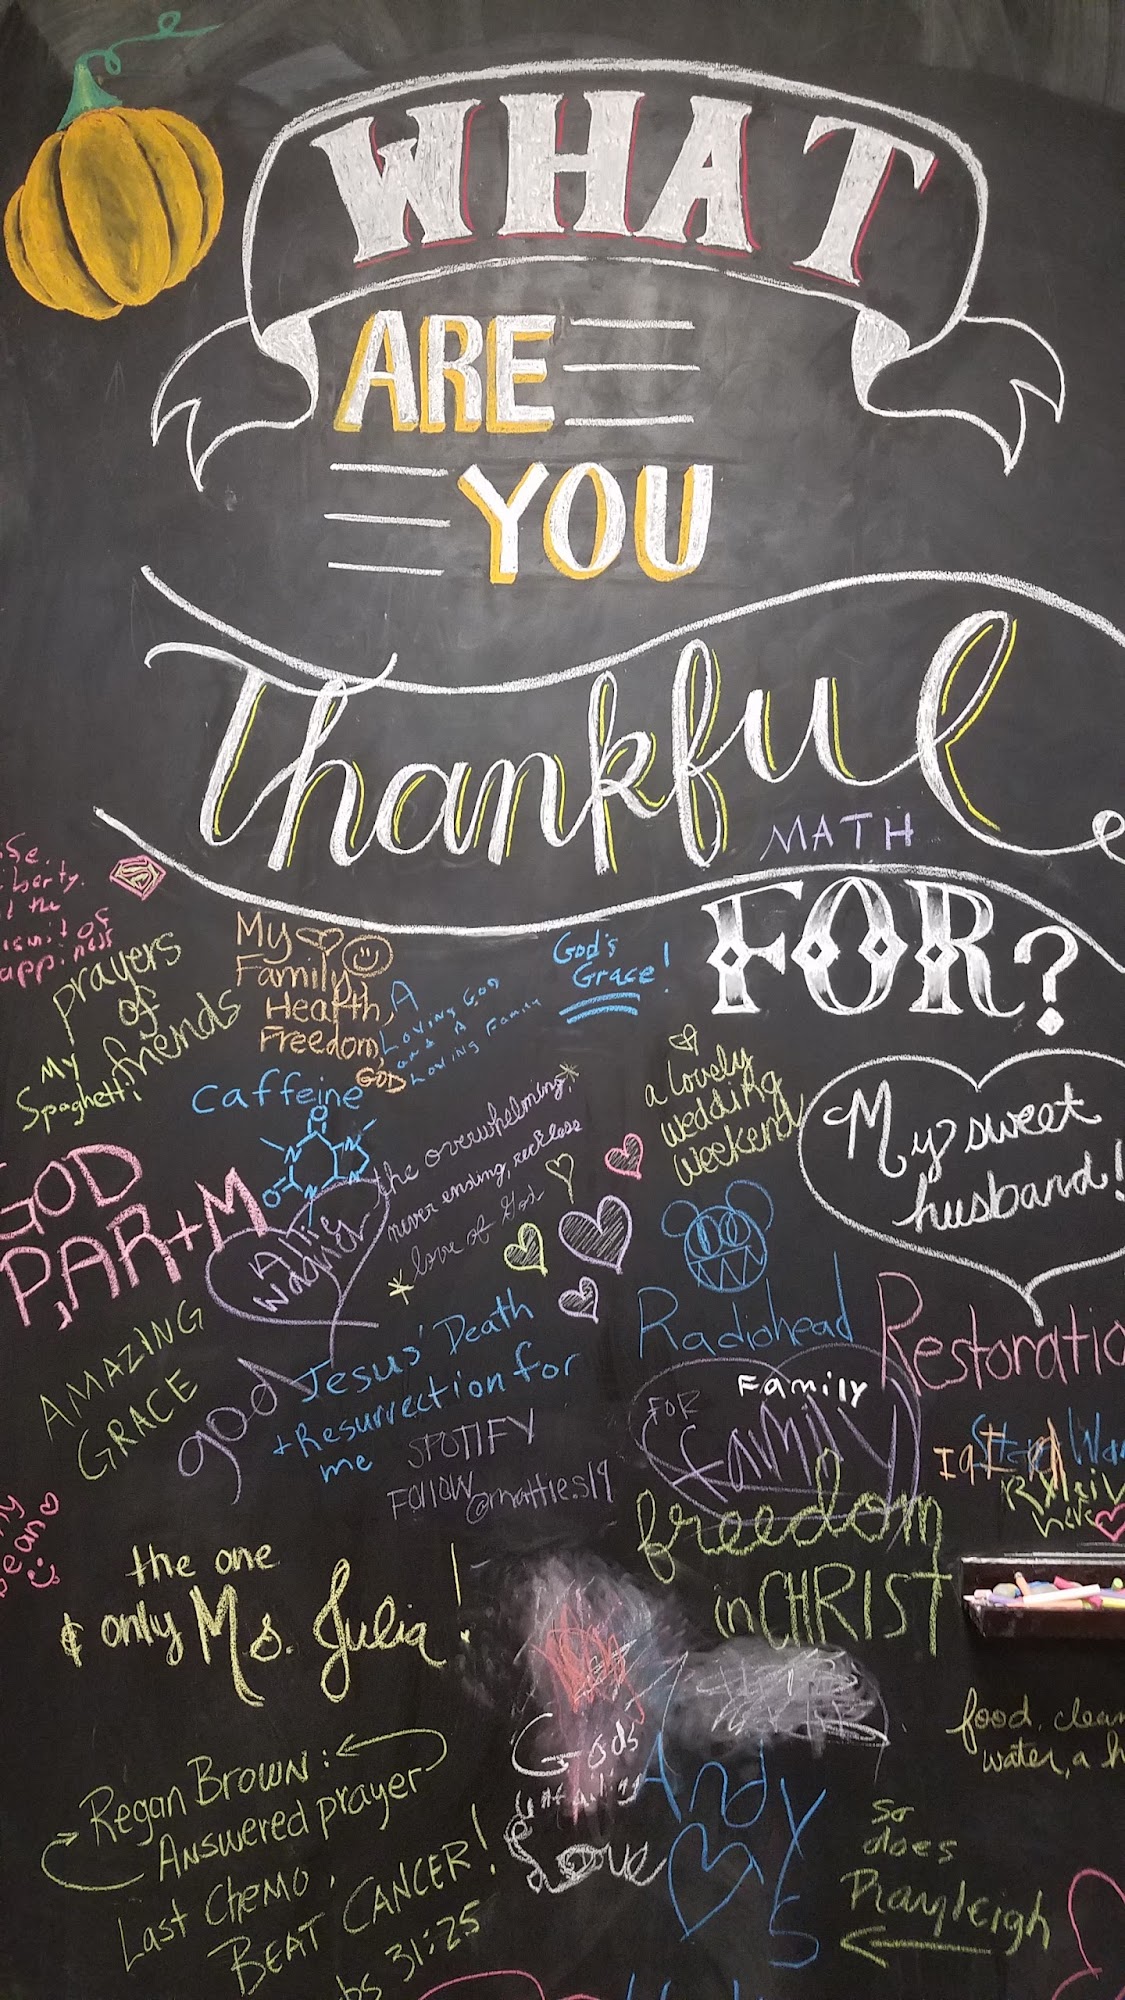 WHAT
ARE
YOU
Thankful
MATH
FOR?
the
prayers
of
friends
My
Family
Health,
Freedom,
GOD
A
Loving God
and A
Loving Family
God's
Grace!
My
Spaghetti
Caffeine
O
N
N
O
N
N
the overwhelming,
never ending, reckless
love of God
a lovely
wedding
weekend
My sweet
husband!
GOD
Wagner
AMAZING
GRACE
god
Jesus' Death
+ Resurrection for
me
SPOTIFY
FOllOW
@matties19
Radiohead
Restoratio
FOR
Family
family
freedom
in CHRIST
the one
& only Ms. Julia!
Regan Brown:
Answered prayer
Last Chemo,
BEAT CANCER!
31:25
Gods
Love
Andy
5
food, clean
water, a h
so
does
Rayleigh